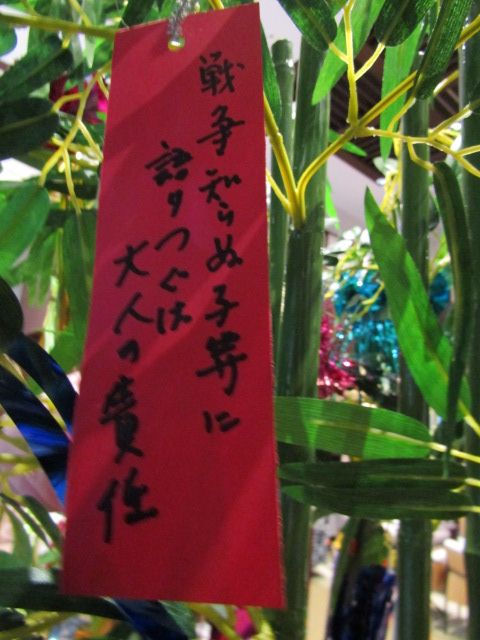 戦争知らぬ子等に
語りつぐは
大人の責任